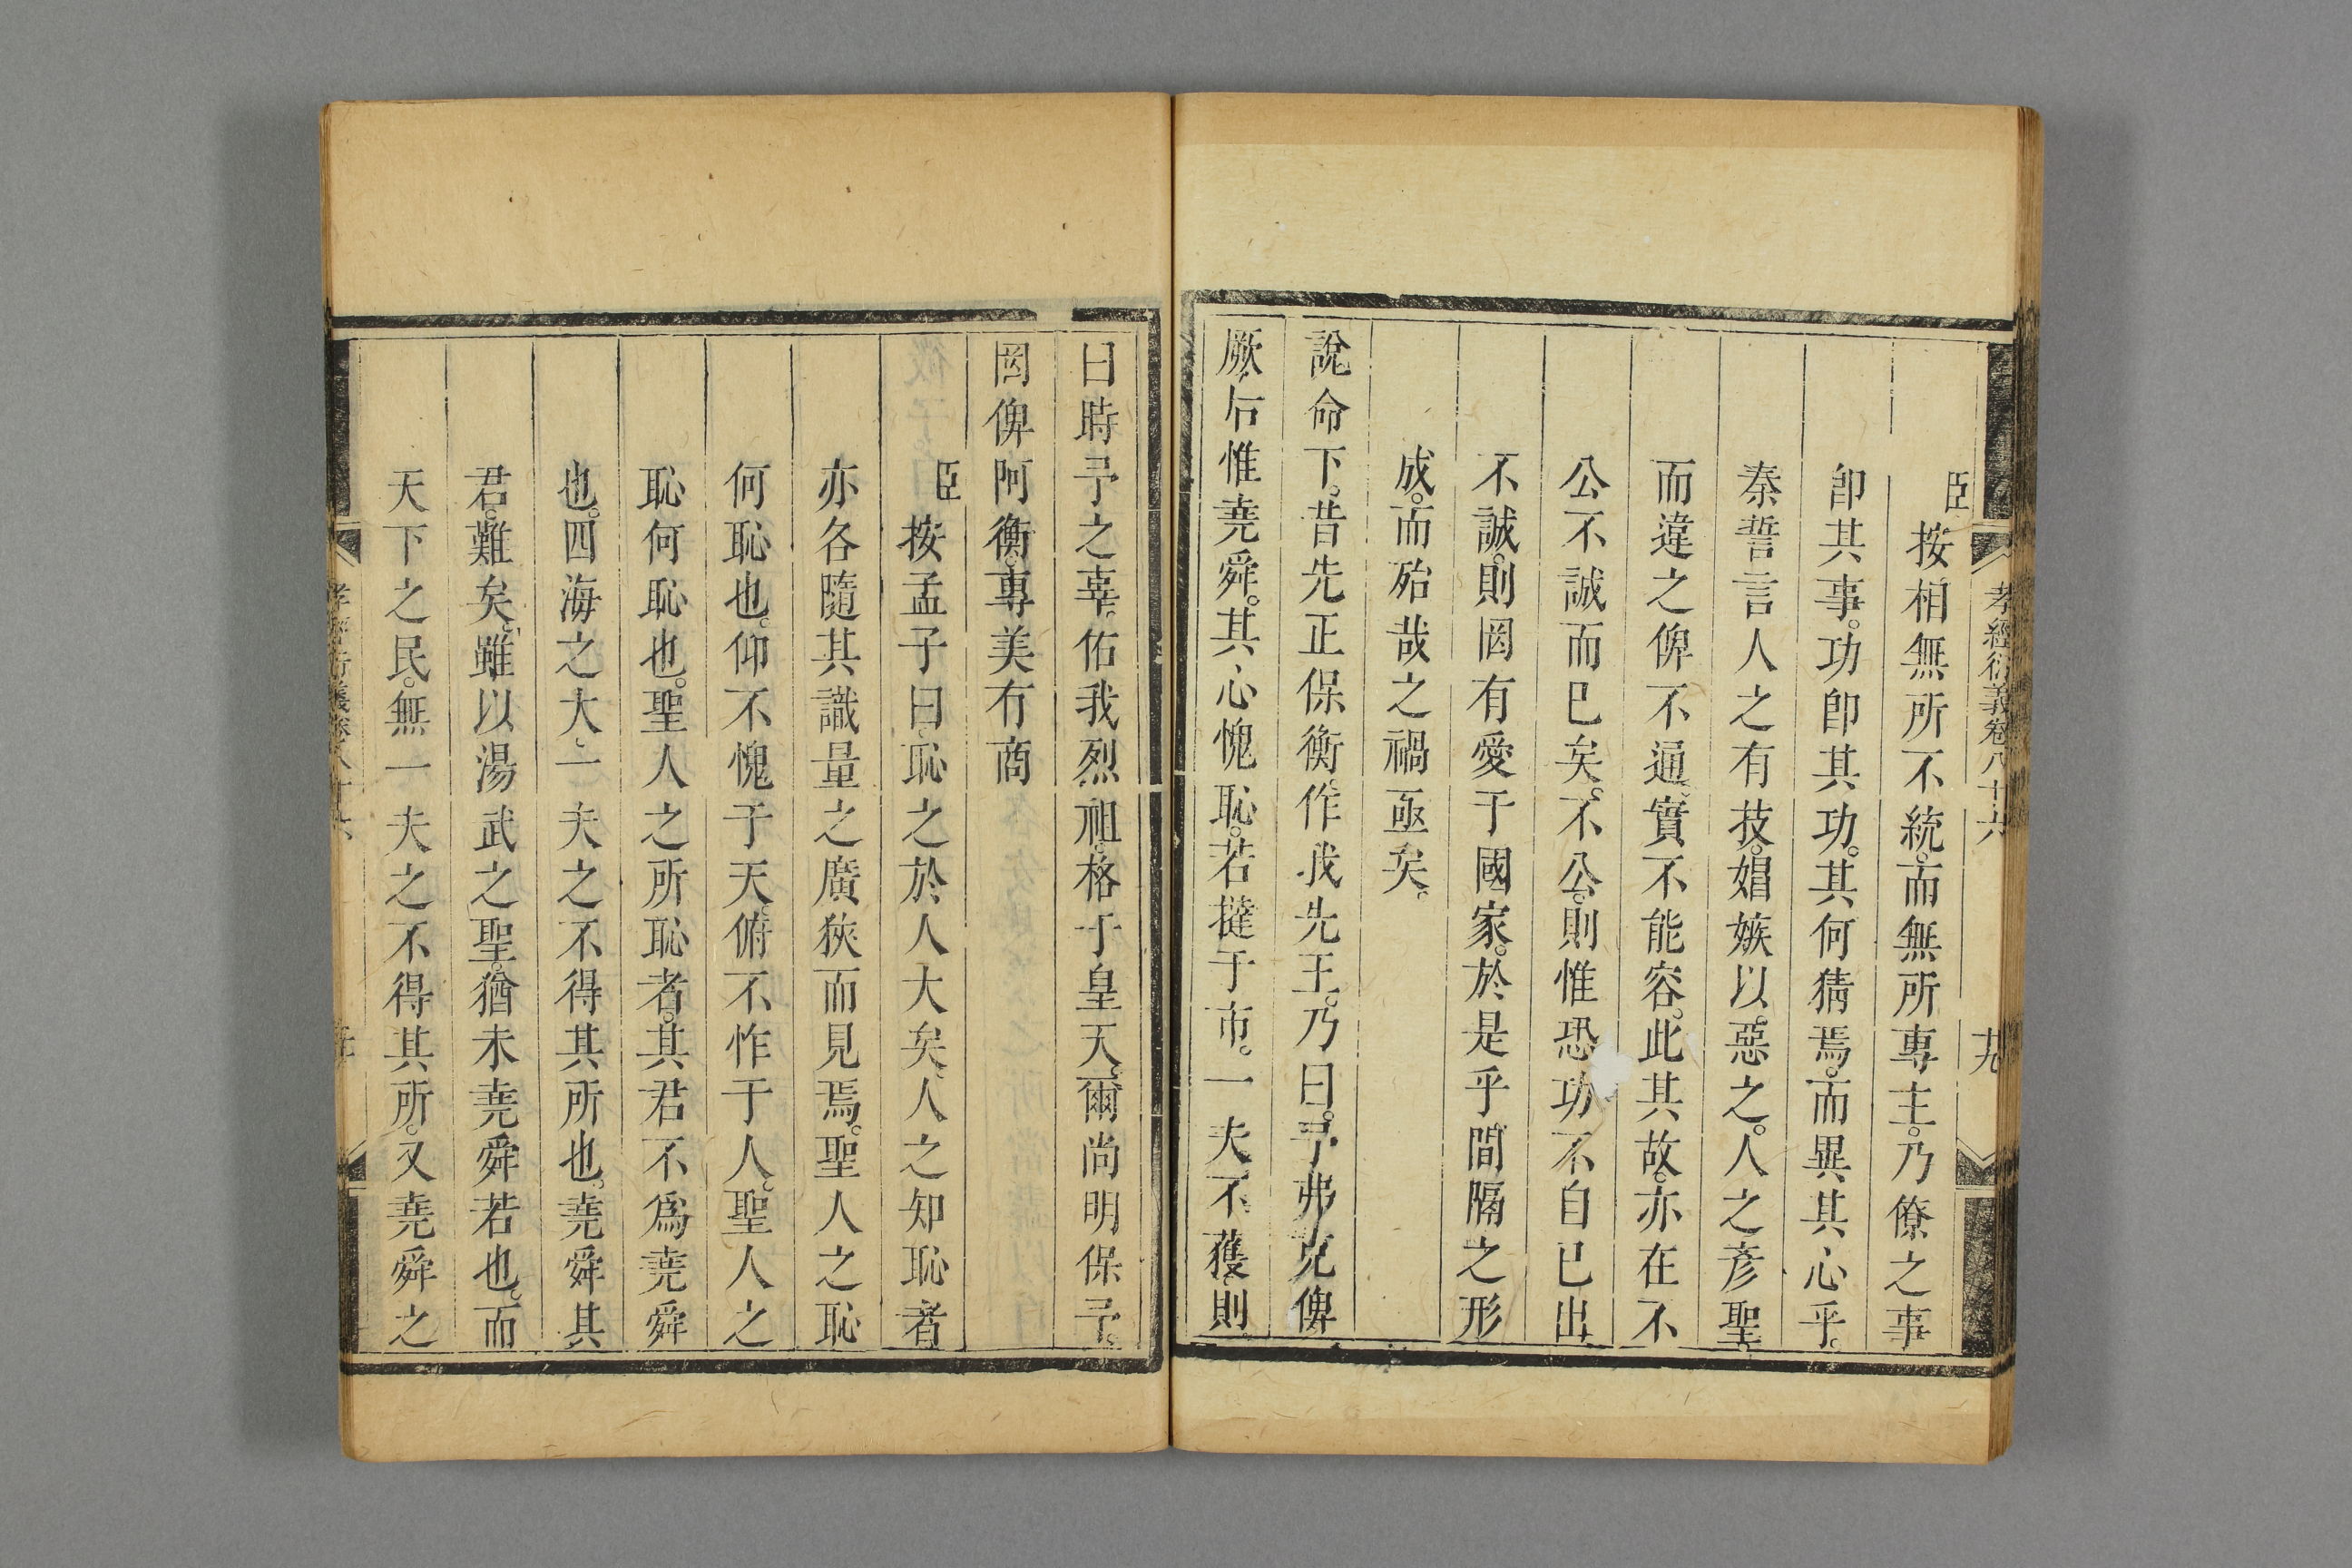 孝經衍義卷八十六
十九
臣按相無所不統。而無所專主。乃僚之事
卽其事。功卽其功。其何猜焉。而異其心乎。
秦誓言人之有技。娼嫉以惡之。人之彥聖
而違之俾不通。實不能容。此其故。亦在不
公不誠而已矣。不公。則惟恐功不自已出
不誠。則罔有愛于國家。於是乎間隔之形
成。而殆哉之禍亟矣。
說命下。昔先正保衡。作我先王。乃曰。予弗克俾
厥后惟堯舜。其心愧恥。若撻于市。一夫不獲。則
曰時予之辜。佑我烈祖。格于皇天。爾尚明保予。
罔俾阿衡。專美有商
臣按孟子曰。恥之於人大矣。人之知恥者
亦各隨其識量之廣狹而見焉。聖人之恥
何恥也。仰不愧于天。俯不怍于人。聖人之
恥何恥也。聖人之所恥者。其君不爲堯舜
也。四海之大。一夫之不得其所也。堯舜其
君。難矣。雖以湯武之聖。猶未堯舜若也。而
天下之民。無一夫之不得其所。又堯舜之